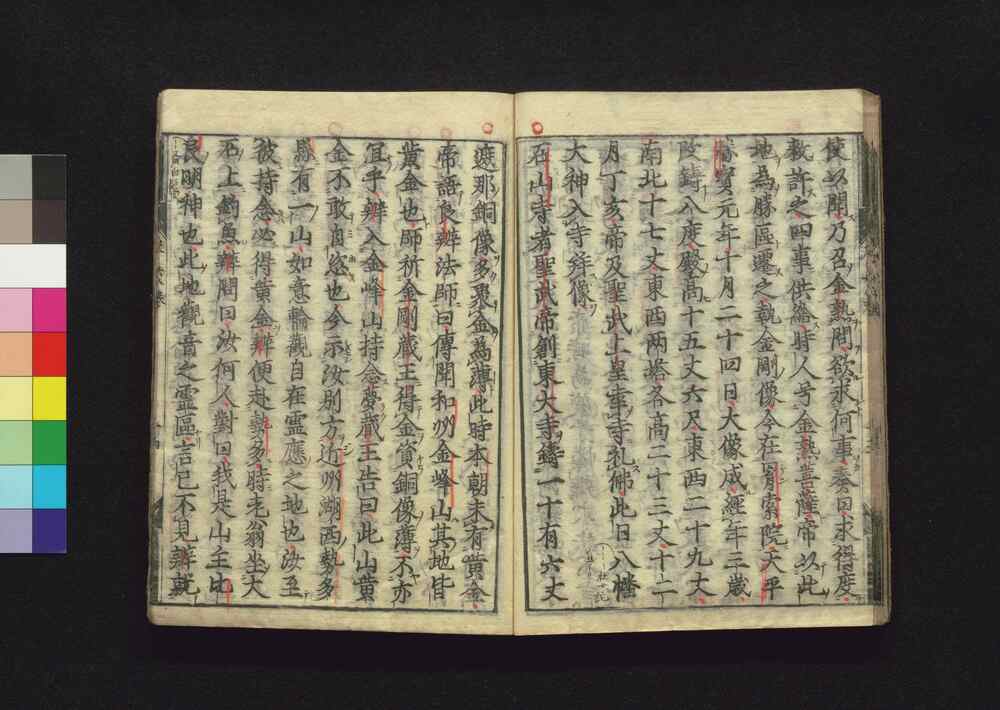 使以聞乃召金熟問欲求何事奏曰求得度
敕許之四事供給時人号金熟菩薩帝以此
地為勝區遷之執金剛像今在羂索院天平
勝寳元年十月二十四日大像成經年三歳
改鑄八度殿高十五丈六尺東西二十九丈
南北十七丈東西兩塔各高二十三丈十二
月丁亥帝及聖武上皇幸寺礼佛此日八幡
大神入寺拜像
石山寺者聖武帝創東大寺鑄一十有六丈
遮那銅像多聚金為薄此時本朝未有黄金
帝語良辨法師曰傳聞和州金峰山其地皆
黄金也師祈金剛藏王得金貿銅像薄不亦
宜乎辨入金峰山持念夢藏王告曰此山黄
金不敢自恣也今示汝別方近州湖西勢多
縣有一山如意輪觀自在靈應之地也汝至
彼持念必得黄金辨便赴勢多時老翁坐大
石上釣魚辨問曰汝何人對曰我是山主比
良明神也此地觀音之霊區言已不見辨就